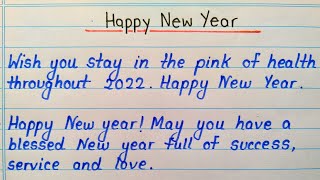 Happy New Year
Wish you stay in the pink of health
throughout 2022. Happy New Year.
Happy New year! May you have a
blessed New year full of success,
service and love.